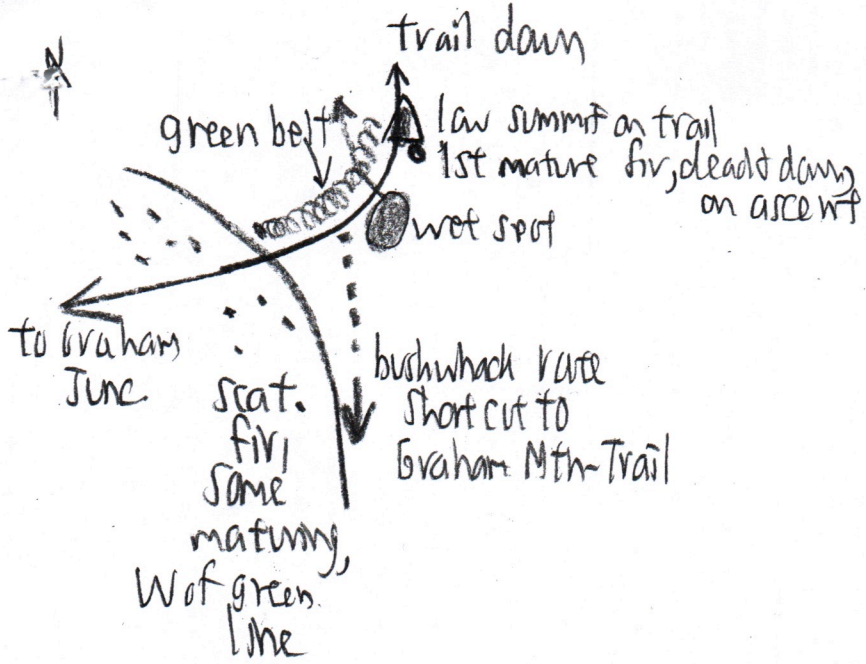 trail down
N
green belt
low summit on trail
1st mature fir, dead & down,
on ascent
wet spot
to Graham
Junc.
bushwhack route
short cut to
Graham Mtn-Trail
scat.
fir,
some
maturing,
W of green
line